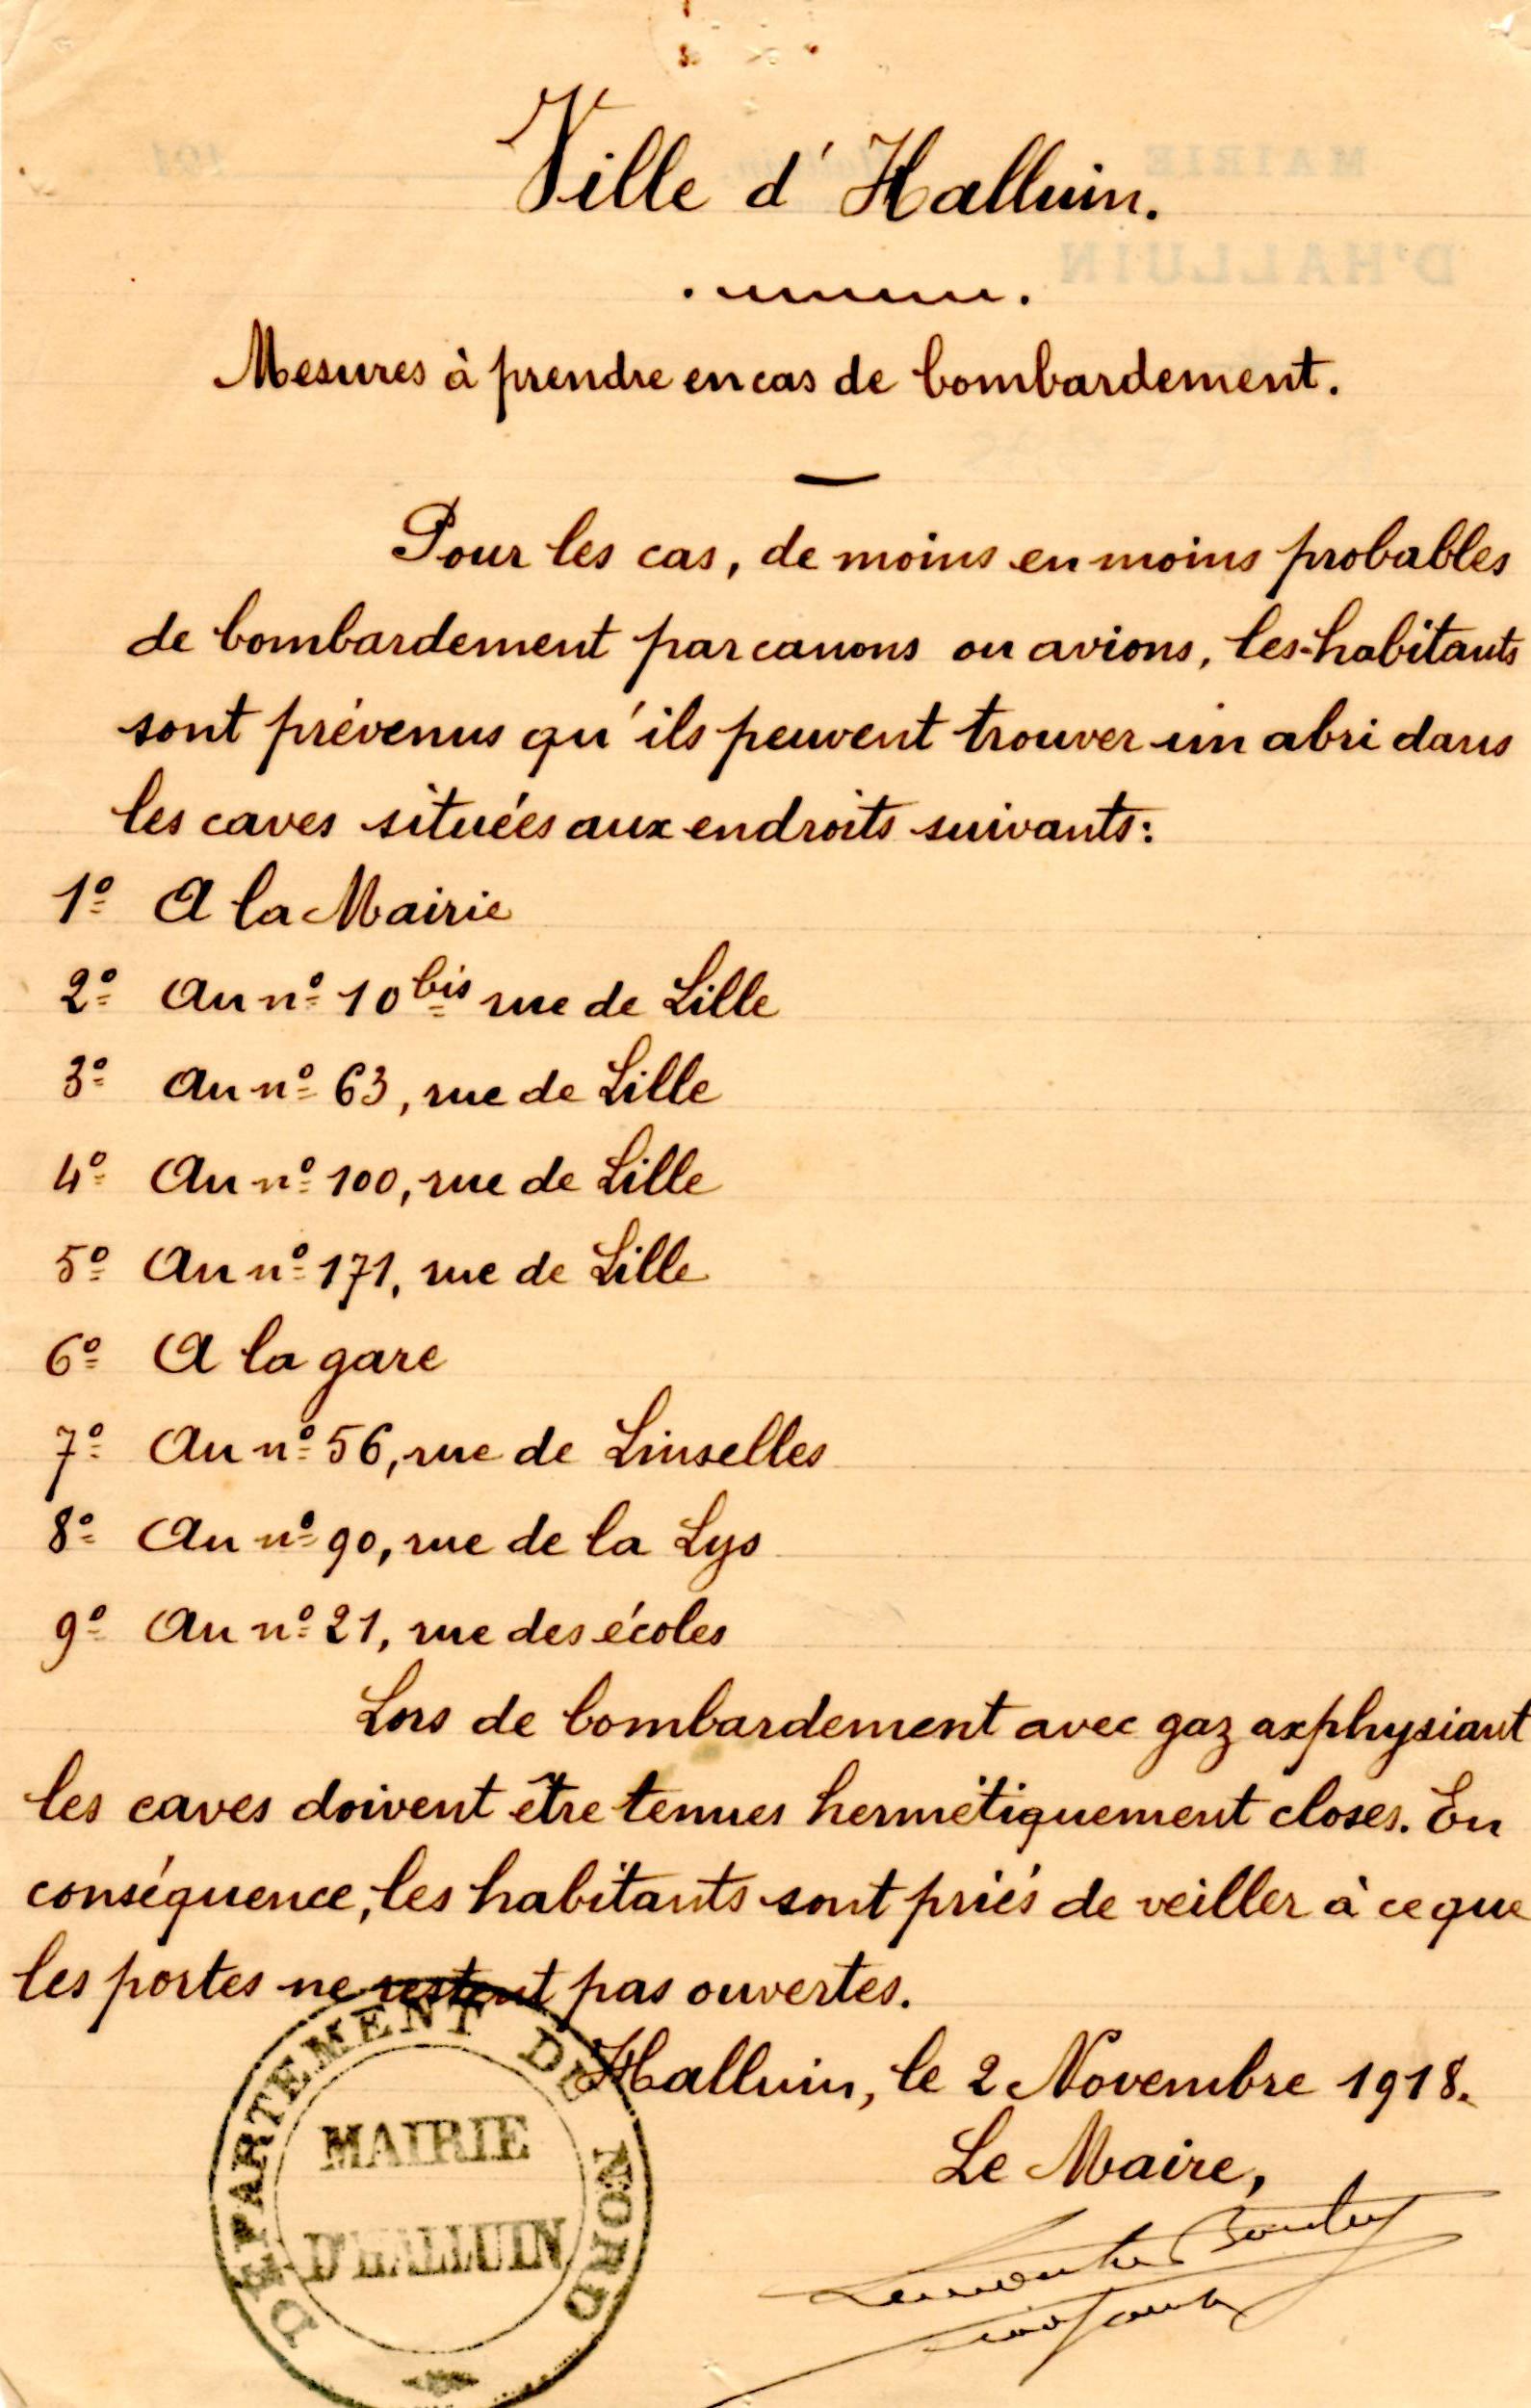 Ville d'Halluin.
Mesures à prendre en cas de bombardement.
Pour les cas, de moins en moins probables
de bombardement par canons ou avions, les habitants
sont prévenus qu'ils peuvent trouver un abri dans
les caves situées aux endroits suivants:
1º A la Mairie
2º Au nº 10 bis rue de Lille
3º Au nº 63, rue de Lille
4º Au nº 100, rue de Lille
5º Au nº 171, rue de Lille
6º A la gare
7º Au nº 56, rue de Linselles
8º Au nº 90, rue de la Lys
9º Au nº 21, rue des écoles
Lors de bombardement avec gaz axphysiant
les caves doivent être tenues hermétiquement closes. En
conséquence, les habitants sont priés de veiller à ce que
les portes ne restent pas ouvertes.
Halluin, le 2 Novembre 1918.
Le Maire,
DÉPARTEMENT DU NORD
MAIRIE
D'HALLUIN
MAIRIE
D'HALLUIN
191